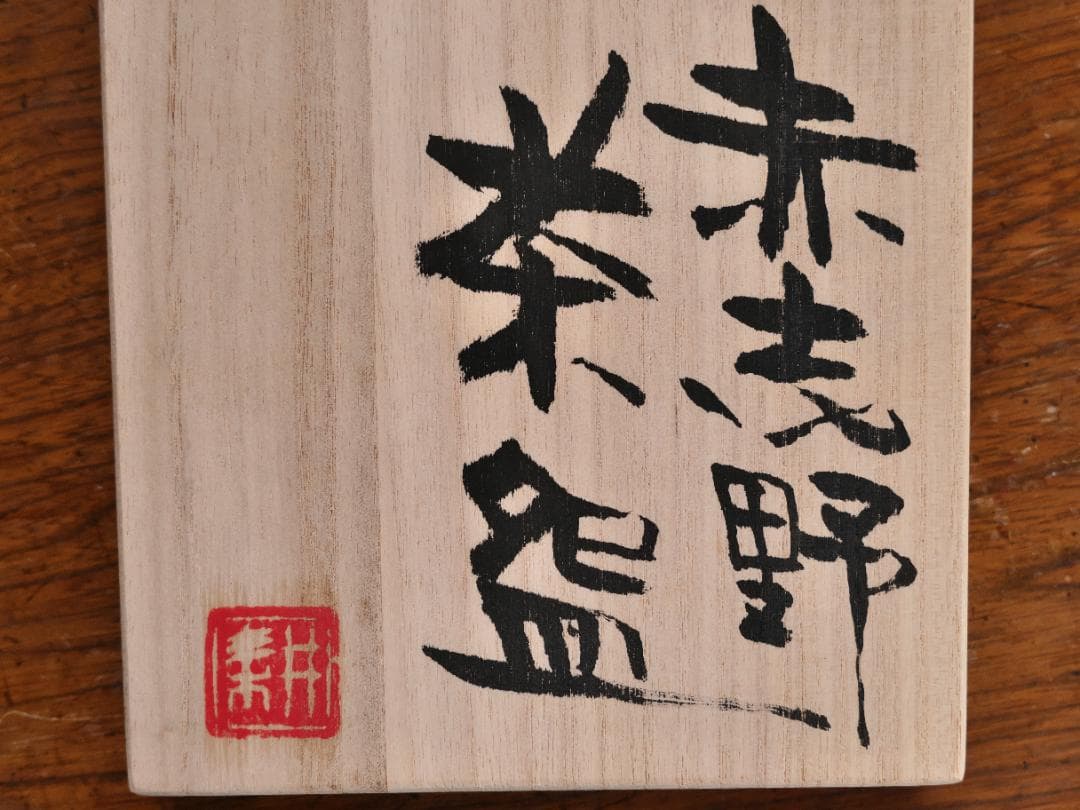 赤志野
茶盌
耕